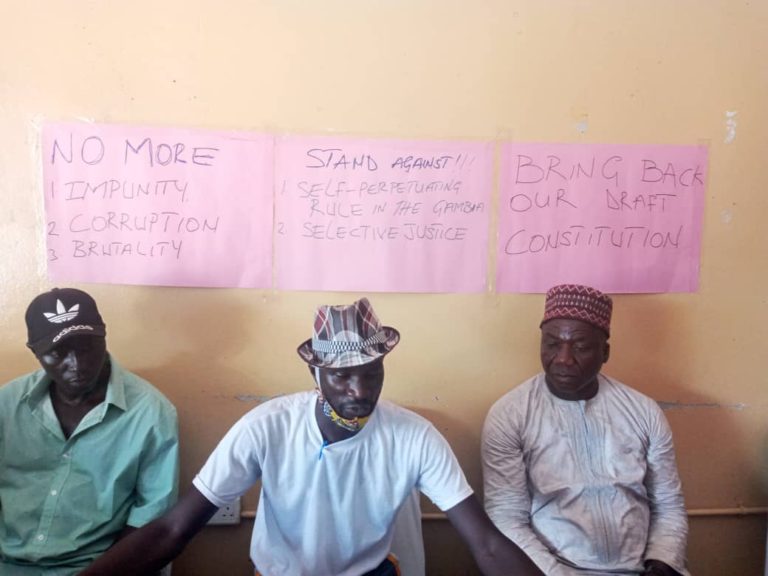 NO MORE
1 IMPUNITY
2 CORRUPTION
3 BRUTALITY
STAND AGAINST!!!
1. SELF-PERPETUATING
RULE IN THE GAMBIA
2. SELECTIVE JUSTICE
BRING BACK
OUR DRAFT
CONSTITUTION
adidas